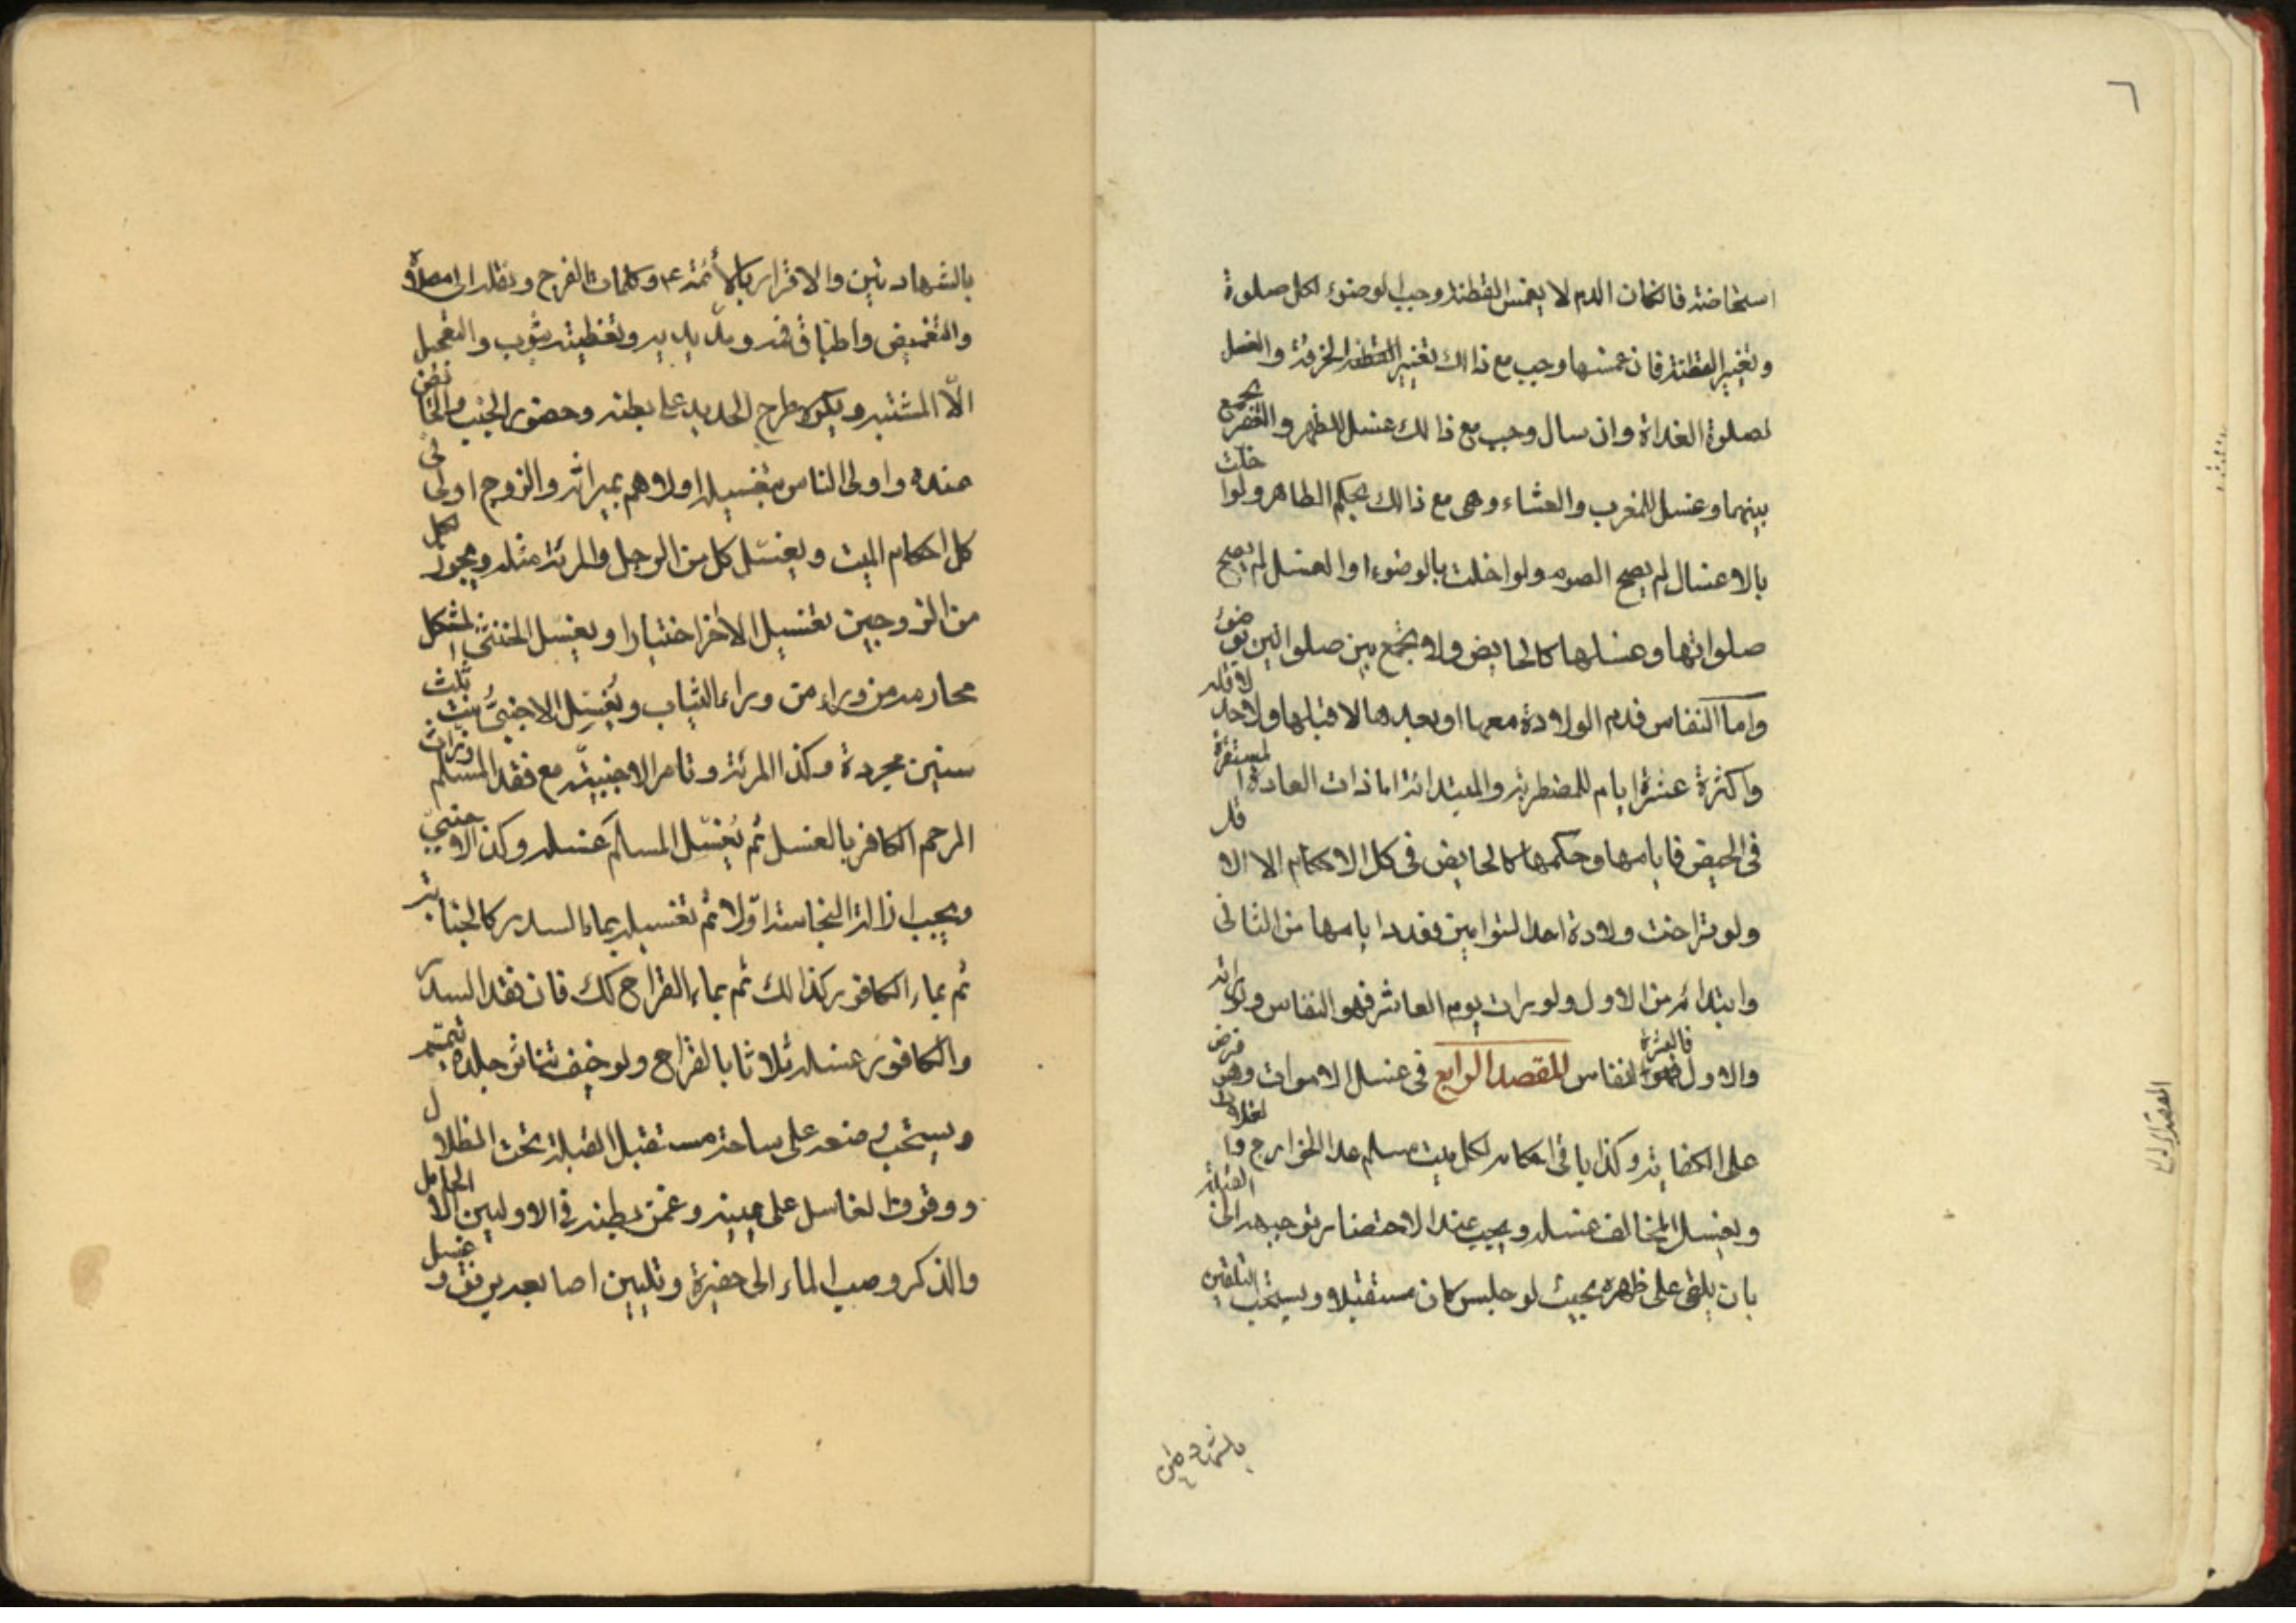 ٦
استحاضة فان كان الدم لا يغمس القطنة وجب الوضوء لكل صلوة
وتغيير القطنة فان غمسها وجب مع ذالك تغيير الخرقة والغسل
لصلوة الغداة وان سال وجب مع ذالك غسل للظهر والعصر تجمع
بينهما وغسل للمغرب والعشاء وهى مع ذالك بحكم الطاهر ولو اخلت
بالاغسال لم يصح الصوم ولو اخلت بالوضوء او الغسل لم يصح
صلواتها وغسلها كالحايض ولا يجمع بين صلواتين بوضوء
واما النفاس فدم الولادة معها او بعدها لا قبلها ولا حد لاقله
واكثرة عشرة ايام للمضطربة والمبتدائة اما ذات العادة المستقرة
فى الحيض فايامها وحكمها كالحايض فى كل الاحكام الا الاقل
ولو تراخت ولادة احد التوامين فعدد ايامها من الثانى
وابتدائه من الاول ولو يرات يوم العاشر فهو النفاس ولو راته
والاول فالعشرة نفاس المقصد الرابع فى غسل الاموات وهو فرض
على الكفاية وكذا باقى احكامه لكل ميت مسلم عدا الخوارج والغلاة
ويغسل المخالف غسله ويجب عند الاحتضار توجيهه الى القبلة
بان يلقى على ظهره بحيث لو جلس كان مستقبلا ويستحب التلقين
المقصد الرابع
بالشهادتين
بالشهادتين والاقرار بالأئمة ع م وكلمات الفرج ونقله الى مصلاه
والتغميض واطباق فيه ومدّ يديه وتغطيته بثوب والتعجيل
الّا المشتبه ويكره طرح الحديد على بطنه وحضور الجنب والحائض
عنده واولى الناس بتغسيله اولاهم بميراثه والزوج اولى فى
كل احكام الميت ويغسّل كل من الرجل والمرئة مثله ويجوز لكل
من الزوجين تغسيل الاخر اختيارا ويغسل الخنثى المشكل
محارمه من وراء من وراء الثياب ويُغسّل الاجنبىُّ بنت ثلث
سنين مجردة وكذا المرئة وتامر الاجنبيّة مع فقد المسلم وذات
الرحم الكافر بالغسل ثم يُغسّل المسلم غسله وكذا الاجنبىّ
ويجب ازالة النجاسة اوّلا ثم تغسيله بماء السدر كالجنابة
ثم بماء الكافور كذالك ثم بماء القراح كك فان فقد السدر
والكافور غسله ثلاثا بالقراح ولو خيف تناثر جلده تيمم
ويستحب وضعه على ساحة مستقبل القبلة تحت الظلال
ووقوف الغاسل على يمينه وغمز بطنه فى الاوليين الا الحامل
والذكر وصب الماء الى حفيرة وتليين اصابعه برفق وغسل